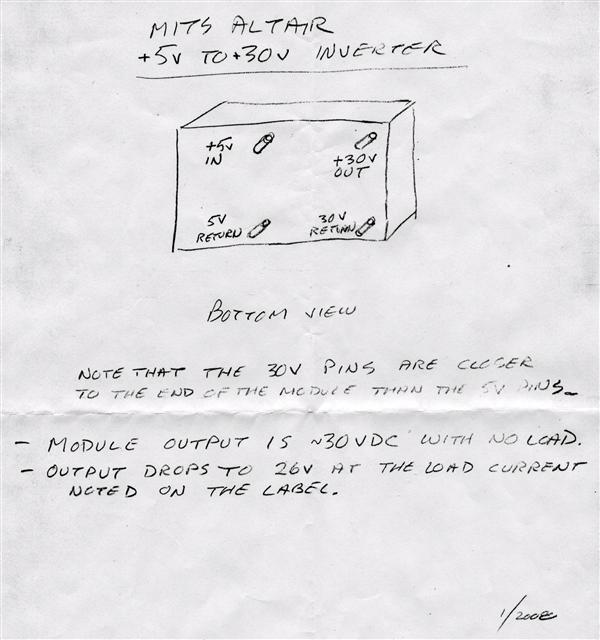 MITS ALTAIR
+5V TO +30V INVERTER
+5V
IN
+30V
OUT
5V
RETURN
30V
RETURN
BOTTOM VIEW
NOTE THAT THE 30V PINS ARE CLOSER
TO THE END OF THE MODULE THAN THE 5V PINS.
- MODULE OUTPUT IS ~30VDC WITH NO LOAD.
- OUTPUT DROPS TO 26V AT THE LOAD CURRENT
NOTED ON THE LABEL.